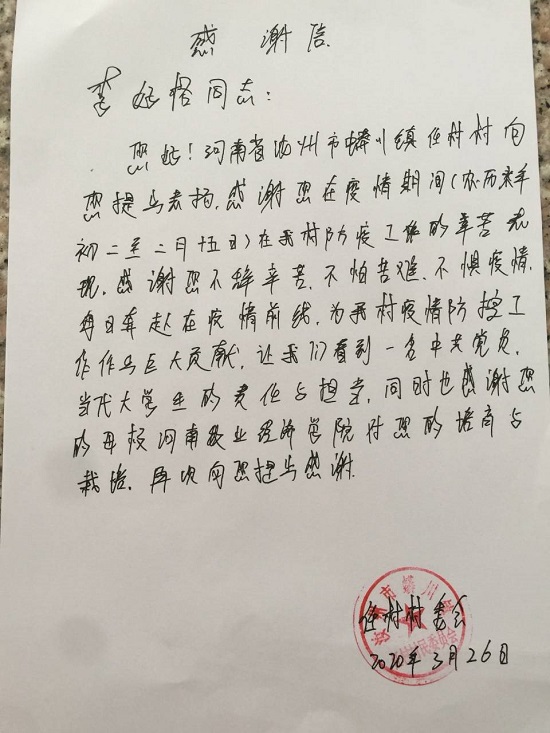 感谢信
李 同志：
您好！河南省汝州市蟒川镇任村村向
您提出表扬，感谢您在疫情期间（农历 年
初二至二月十五日）在我村防疫工作的辛苦表
现，感谢您不辞辛苦、不怕苦难、不惧疫情，
每日奔赴在疫情前线，为我村疫情防控工
作作出巨大贡献，让我们看到一名中共党员、
当代大学生的责任与担当，同时也感谢您
的母校河南牧业经济学院对您的培育与
栽培，再次向您提出感谢
任村村委会
2020年3月26日